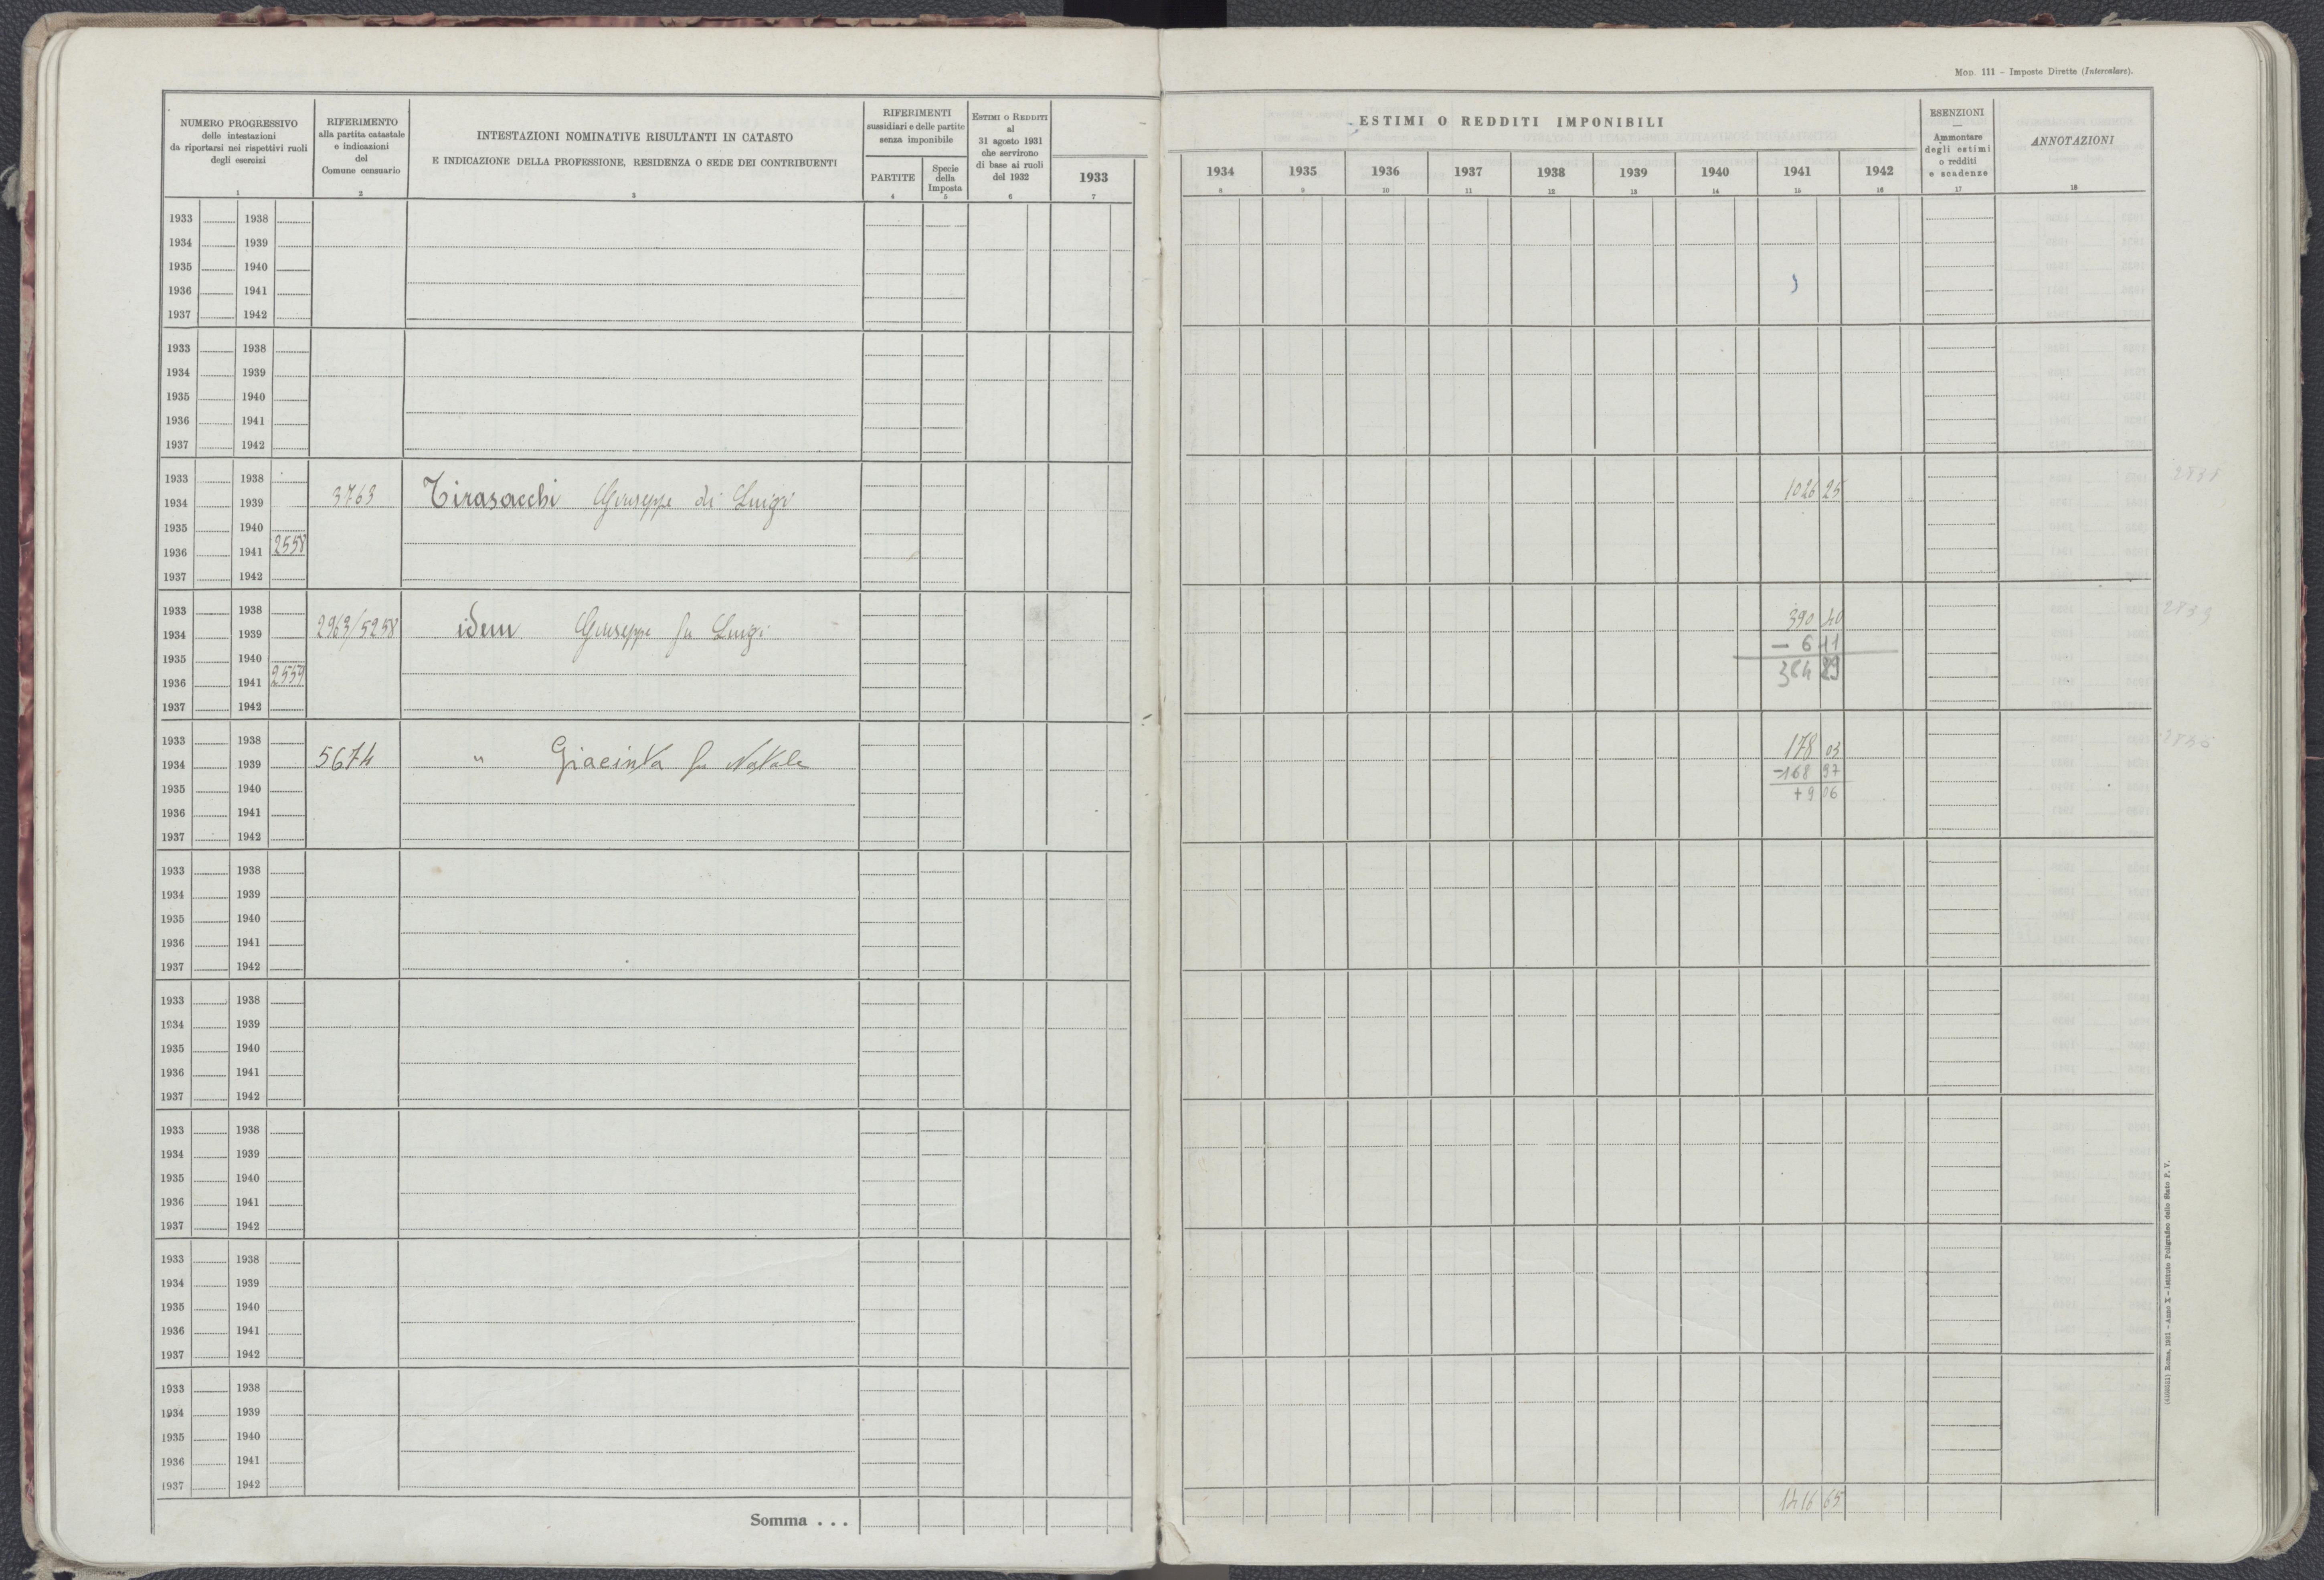 Mod. 111 - Imposte Dirette (Intercalare).
NUMERO PROGRESSIVO
delle intestazioni
da riportarsi nei rispettivi ruoli
degli esercizi
1
RIFERIMENTO
alla partita catastale
e indicazioni
del
Comune censuario
2
INTESTAZIONI NOMINATIVE RISULTANTI IN CATASTO
E INDICAZIONE DELLA PROFESSIONE, RESIDENZA O SEDE DEI CONTRIBUENTI
3
RIFERIMENTI
sussidiari e delle partite
senza imponibile
PARTITE
4
Specie
della
Imposta
5
Estimi o Redditi
al
31 agosto 1931
che servirono
di base ai ruoli
del 1932
6
1933
7
ESTIMI O REDDITI IMPONIBILI
1934 1935 1936 1937 1938 1939 1940 1941 1942
8 9 10 11 12 13 14 15 16
ESENZIONI
—
Ammontare
degli estimi
o redditi
e scadenze
17
ANNOTAZIONI
18
1933 1938
1934 1939
1935 1940
1936 1941
1937 1942
1933 1938
1934 1939
1935 1940
1936 1941
1937 1942
1933 1938
1934 1939 3763 Tirasacchi Giuseppe di Luigi 1026 25
1935 1940
1936 1941 2558
1937 1942
1933 1938
1934 1939 2963/5258 idem Giuseppe fu Luigi 390 40
1935 1940 - 6 11
1936 1941 2559 384 29
1937 1942
1933 1938
1934 1939 5674 " Giacinta fu Natale 178 03
1935 1940 -168 97
1936 1941 +9 06
1937 1942
1933 1938
1934 1939
1935 1940
1936 1941
1937 1942
1933 1938
1934 1939
1935 1940
1936 1941
1937 1942
1933 1938
1934 1939
1935 1940
1936 1941
1937 1942
1933 1938
1934 1939
1935 1940
1936 1941
1937 1942
1933 1938
1934 1939
1935 1940
1936 1941
1937 1942
Somma . . . 1416 65
Roma, 1931 - Anno X - Istituto Poligrafico dello Stato P. V.